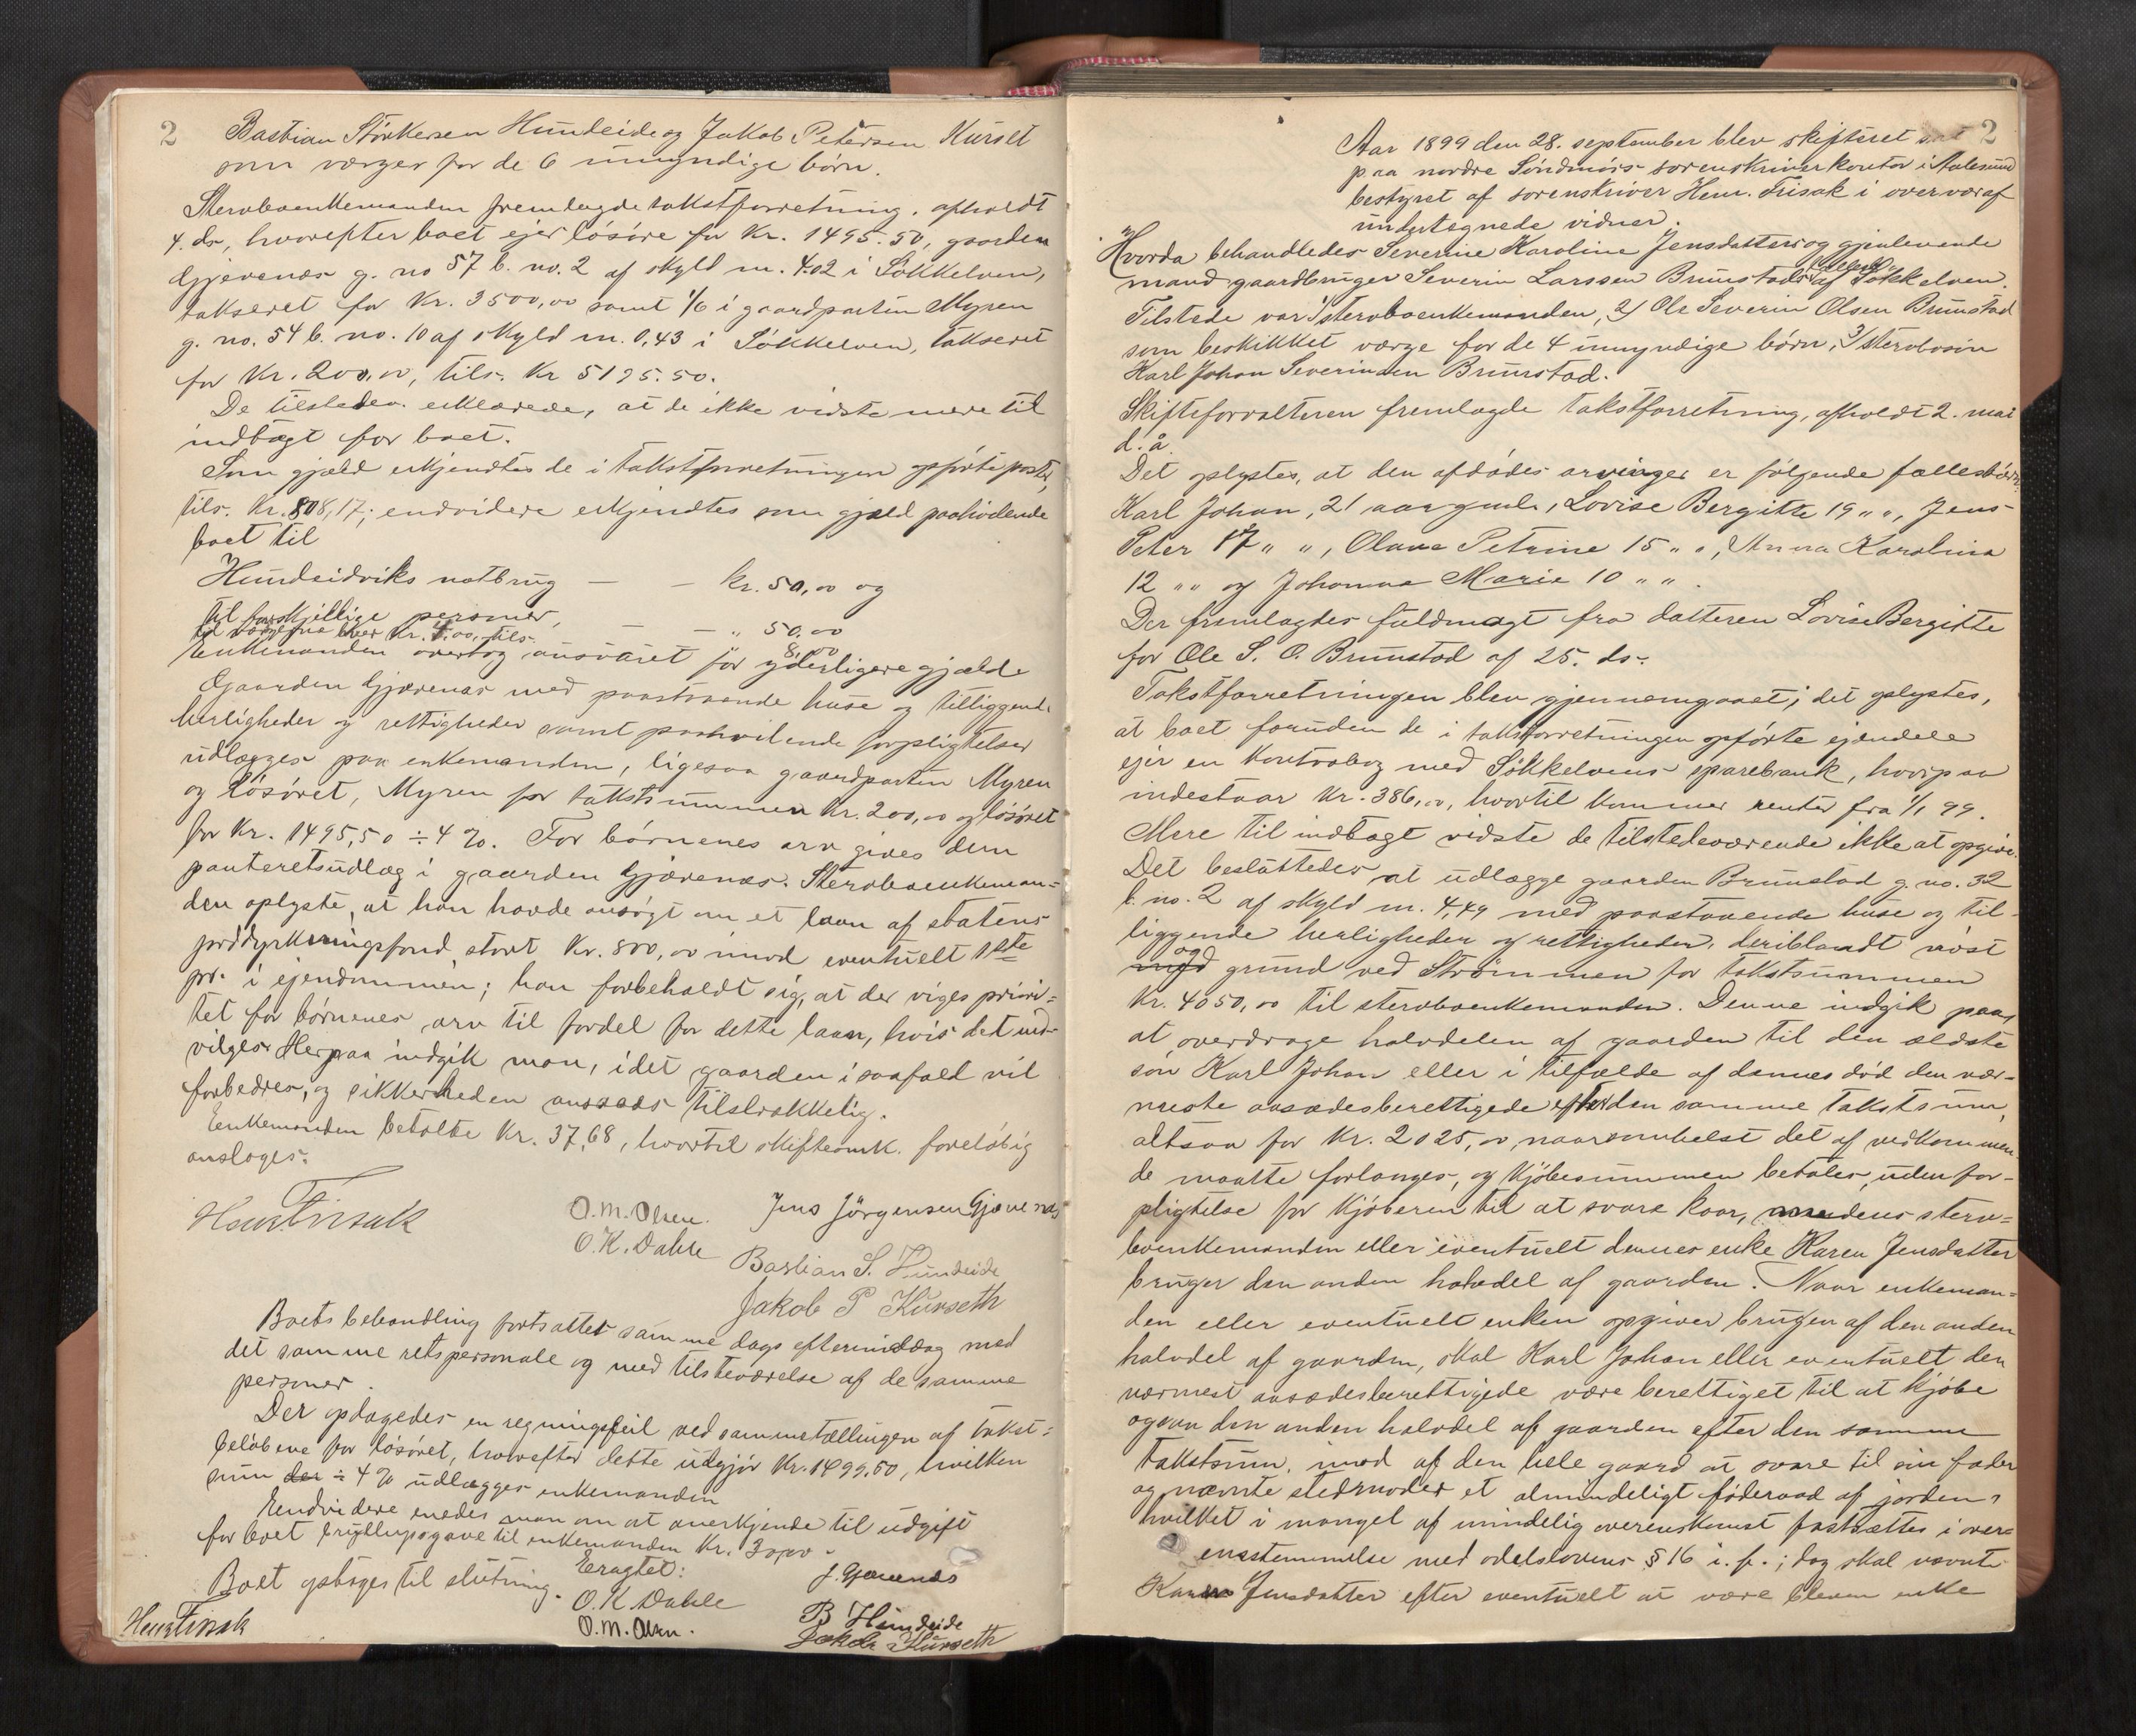 2
Bastian Størkersen Hundeide og Jakob Petersen Kurset
som værger for de 6 umyndige børn.
Stervboenkemanden fremlagde takstforretning, afholdt
4. ds, hvorefter boet ejer løsøre for Kr. 1495.50, gaarden
Gjævenæs g. no 57 b. no. 2 af skyld m. 4.02 i Søkkelven,
takseret for Kr. 3500,00 samt 1/6 i gaardparten Myren
g. no. 54 b. no. 10 af skyld m. 0,43 i Søkkelven, takseret
for Kr. 200,00, tils. Kr 5195.50.
De tilstedev. erklærede, at de ikke vidste mere til
indtægt for boet.
Som gjæld erkjendtes de i takstforretningen opførte poster,
tils. Kr. 808,17; endvidere erkjendtes som gjæld paahvilende
boet til
Hundeidviks notbrug — — kr. 50,00 og
til forskjellige personer, — — " 50.00
til værgerne hver Kr. 4.00, tils. 8,00
Enkemanden overtog ansvaret for yderligere gjæld
Gaarden Gjævenæs med paastaaende huse og tilliggende
herligheder og rettigheder samt paahvilende forpligtelser
udlægges paa enkemanden, ligesaa gaardparten Myren
og løsøret, Myren for takstsummen Kr. 200,00 og løsøret
for Kr. 1495,50 ÷ 4 %. For børnenes arv gives dem
panteretsudlæg i gaarden Gjævenæs. Stervboenkeman=
den oplyste, at han havde ansøgt om et laan af statens
jorddyrkningsfond stort Kr. 800,00 imod eventuelt 1ste
pr. i ejendommen; han forbeholdt sig, at der viges priori=
tet for børnenes arv til fordel for dette laan, hvis det ind-
vilges. Herpaa indgik man, idet gaarden i saafald vil
forbedres, og sikkerheden ansaaes tilstrækkelig.
Enkemanden betalte Kr. 37,68, hvortil skifteomk. foreløbig
ansloges.
Henr Frisak
O. M. Olsen. Jens Jørgensen Gjævenæs
O. K. Dahle Bastian S. Hundeide
Jakob P Kurseth
Boets behandling fortsattes samme dags eftermiddag med
det samme retspersonale og med tilsteværelse af de samme
personer.
Der opdagedes en regningsfeil ved sammentællingen af takst=
beløbene for løsøret, hvorefter dette udgjør Kr. 1499.50, hvilken
sum der ÷ 4 % udlægges enkemanden
Endvidere enedes man om at anerkjende til udgift
for boet bryllupsgave til enkemanden Kr. 30,00.
Boet optages til slutning.
Eragtet:
Henr Frisak
O. K. Dahle
O. M. Olsen.
J. Gjævenæs
B Hundeide
Jakob Kurseth
2
Aar 1899 den 28. september blev skifteret sat
paa nordre Søndmørs sorenskriverkontor i Aalesund
bestyret af sorenskriver Henr. Frisak i overvær af
undertegnede vidner.
Hvorda behandledes Severine Karoline Jensdatters og gjenlevende
mand gaardbruger Severin Larssen Brunstads fællesbo af Søkkelven.
Tilstede var 1/ stervboenkemanden, 2/ Ole Severin Olsen Brunstad
som beskikket værge for de 4 umyndige børn, 3/ stervbosøn
Karl Johan Severinsen Brunstad.
Skifteforvalteren fremlagde takstforretning, afholdt 2. mai
d. å.
Det oplystes, at den afdødes arvinger er følgende fællesbørn:
Karl Johan, 21 aar gml., Lovise Bergitte 19 " ", Jens
Peter 17 " ", Olave Petrine 15 " ", Anna Karolina
12 " " og Johanna Marie 10 " ".
Der fremlagdes fuldmagt fra datteren Lovise Bergitte
for Ole S. O. Brunstad af 25. ds.
Takstforretningen blev gjennemgaaet; det oplystes,
at boet foruden de i takstforretningen opførte ejendele
ejer en kontrabog med Søkkelvens sparebank, hvorpaa
indestaar Kr. 386,00, hvortil kommer renter fra 1/1 99.
Mere til indtægt vidste de tilstedeværende ikke at opgive.
Det besluttedes at udlægge gaarden Brunstad g. no. 32
b. no. 2 af skyld m. 4,49 med paastaaende huse og til-
liggende herligheder og rettigheder, deriblandt nøst
med og grund ved Strømmen for takstsummen
Kr. 4050,00 til stervboenkemanden. Denne indgik paa
at overdrage halvdelen af gaarden til den ældste
søn Karl Johan eller i tilfælde af dennes død den nær-
meste aasædesberettigede efter den samme takstsum,
altsaa for Kr. 2025,00, naarsomhelst det af vedkommen-
de maatte forlanges, og kjøbesummen betales, uden for-
pligtelse for kjøberen til at svare kaar, medens sterv=
boenkemanden eller eventuelt dennes enke Karen Jensdatter
bruger den anden halvdel af gaarden. Naar enkeman=
den eller eventuelt enken opgiver brugen af den anden
halvdel af gaarden, skal Karl Johan eller eventuelt den
nærmest aasædesberettigede være berettiget til at kjøbe
ogsaa den anden halvdel af gaarden efter den samme
takstsum, imod af den hele gaard at svare til sin fader
og nævnte stedmoder et almindeligt føderaad af jorden,
hvilket i mangel af mindelig overenskomst fastsættes i over=
ensstemmelse med odelslovens § 16 i. f.; dog skal nævnte
Karen Jensdatter efter eventuelt at være bleven enke